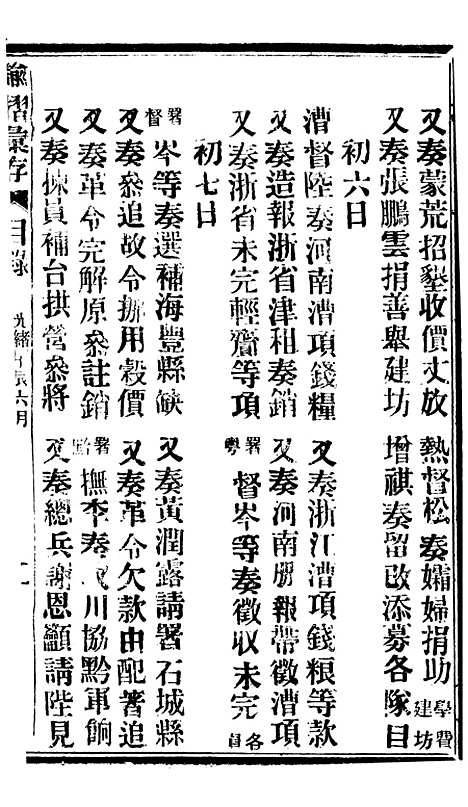 又奏蒙荒招墾收價丈放 熱督松奏孀婦捐助學費建坊
又奏張鵬雲捐善舉建坊 增祺奏留改添募各隊目
初六日
漕督陸奏河南漕項錢糧 又奏浙江漕項錢粮等款
又奏造報浙省津租奏銷 又奏河南冊報帶徵漕項
又奏浙省未完輕齎等項 署粵督岑等奏徵收未完各員
初七日
署督岑等奏選補海豐縣缺 又奏黃潤露請署石城縣
又奏叅追故令挪用穀價 又奏革令欠款由配署追
又奏革令完解原叅註銷 署撫李奏川協黔軍餉
又奏揀員補台拱營叅將 又奏總兵謝恩籲請陛見
諭摺彙存 目錄 光緒甲辰六月